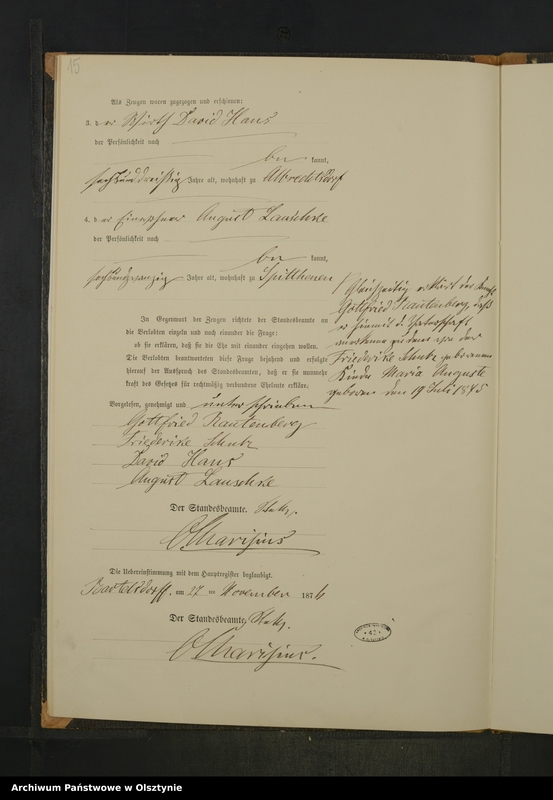 15
Als Zeugen waren zugezogen und erschienen:
3. der Wirth David Hans
der Persönlichkeit nach
be kannt,
sechsunddreißig Jahre alt, wohnhaft zu Albrechtsdorf
4. der Einwohner August Lauschke
der Persönlichkeit nach
be kannt,
sechsundzwanzig Jahre alt, wohnhaft zu Spitthenen
In Gegenwart der Zeugen richtete der Standesbeamte an
die Verlobten einzeln und nach einander die Frage:
ob sie erklären, daß sie die Ehe mit einander eingehen wollen.
Die Verlobten beantworteten diese Frage bejahend und erfolgte
hierauf der Ausspruch des Standesbeamten, daß er sie nunmehr
kraft des Gesetzes für rechtmäßig verbundene Eheleute erkläre.
Gleichzeitig erklärt der
Gottfried Rautenberg, daß
er hiermit d. Vaterschaft
anerkenne zu dem von der
Friederike Schulz geborenen
Kinde Maria Auguste
geboren den 19 Juli 1845
Vorgelesen, genehmigt und unterschrieben
Gottfried Rautenberg
Friederike Schulz
David Hans
August Lauschke
Der Standesbeamte.
Die Uebereinstimmung mit dem Hauptregister beglaubigt.
Bartelsdorff, am 27 ten November 1876
Der Standesbeamte.
* 42 *
Archiwum Państwowe w Olsztynie